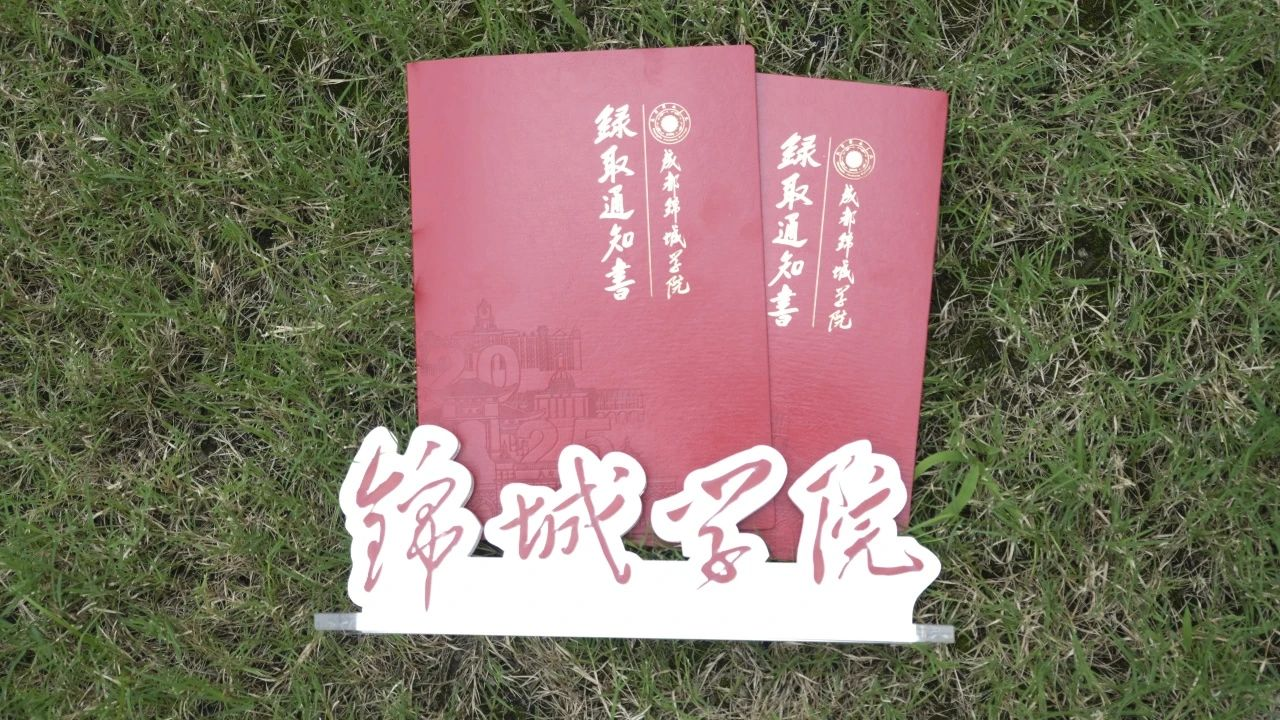 錄取通知書
成都錦城学院
錄取通知書
成都錦城学院
2025
锦城学院